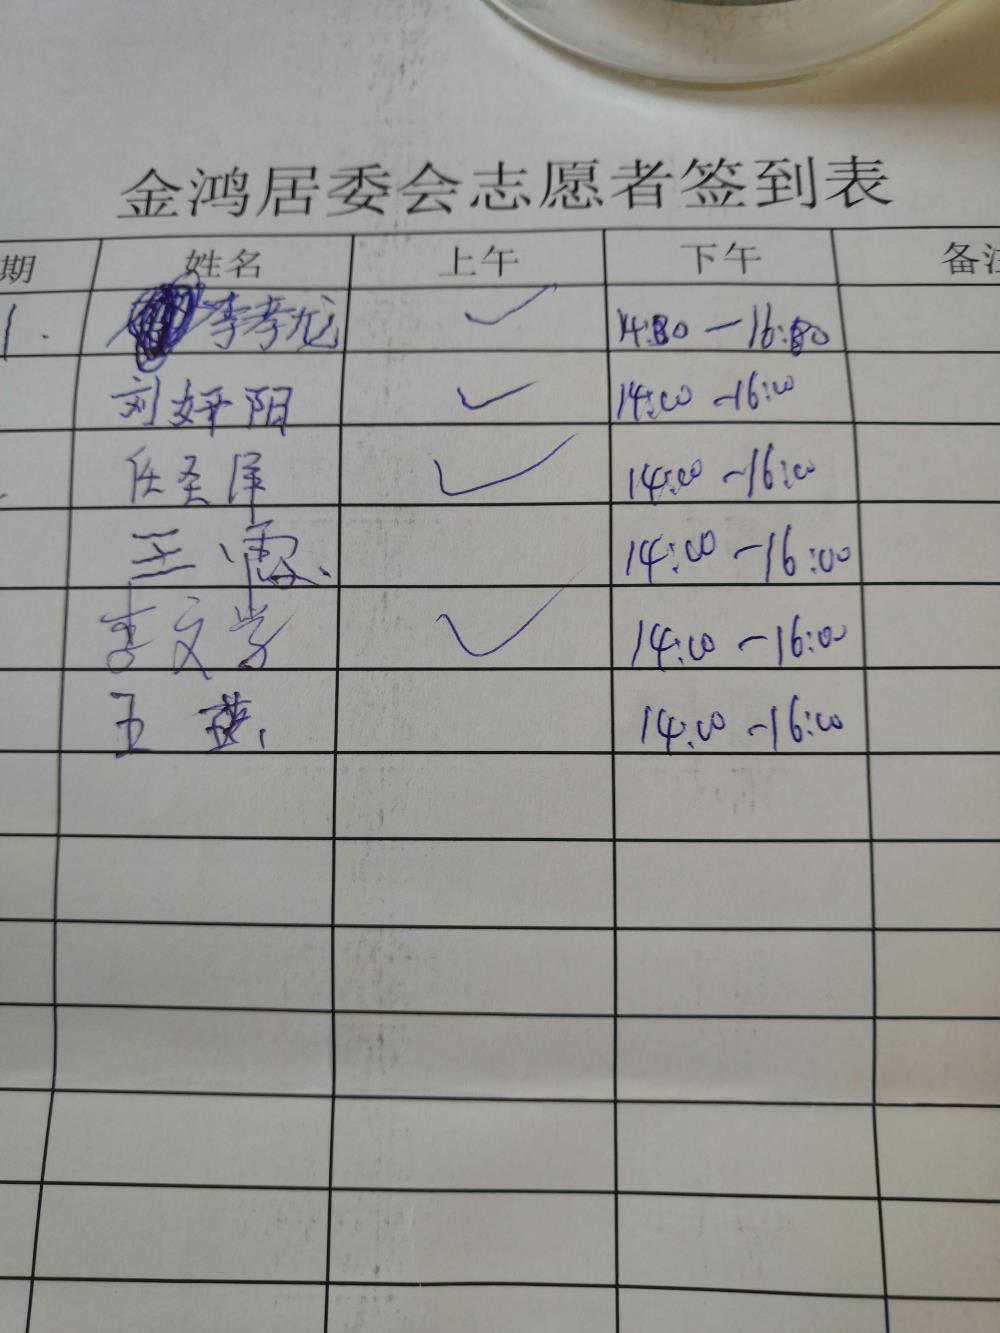 金鸿居委会志愿者签到表
期 姓名 上午 下午 备注
1. 李孝龙 ✓ 14:00-16:00
刘妍阳 ✓ 14:00-16:00
任圣泽 ✓ 14:00-16:00
王 霞. 14:00-16:00
李文学 ✓ 14:00-16:00
王 14:00-16:00